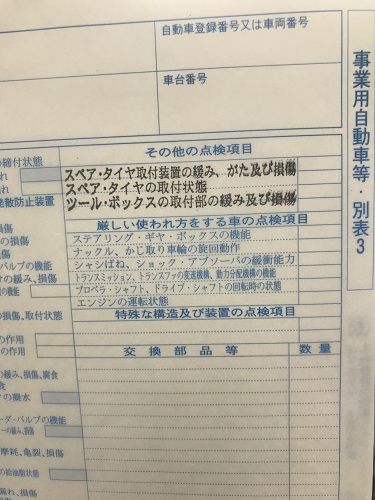 自動車登録番号又は車両番号
車台番号
事業用自動車等・別表3
その他の点検項目
スペア・タイヤ取付装置の緩み、がた及び損傷
スペア・タイヤの取付状態
ツール・ボックスの取付部の緩み及び損傷
厳しい使われ方をする車の点検項目
ステアリング・ギヤ・ボックスの機能
ナックル、かじ取り車輪の旋回動作
シャシばね、ショック・アブソーバの緩衝能力
トランスミッション、トランスファの変速機構、動力分配機構の機能
プロペラ・シャフト、ドライブ・シャフトの回転時の状態
エンジンの運転状態
特殊な構造及び装置の点検項目
交換部品等
数量
の締付状態
れ
発散防止装置
の損傷
の損傷
バルブの機能
み、損傷
の機能
の損傷、取付状態
の作用
の作用
の緩み、損傷、腐食
食
の凝水
ーダ・バルブの機能
ーの緩み、損傷
摩耗、亀裂、損傷
の給油脂状態
漏れ、損傷